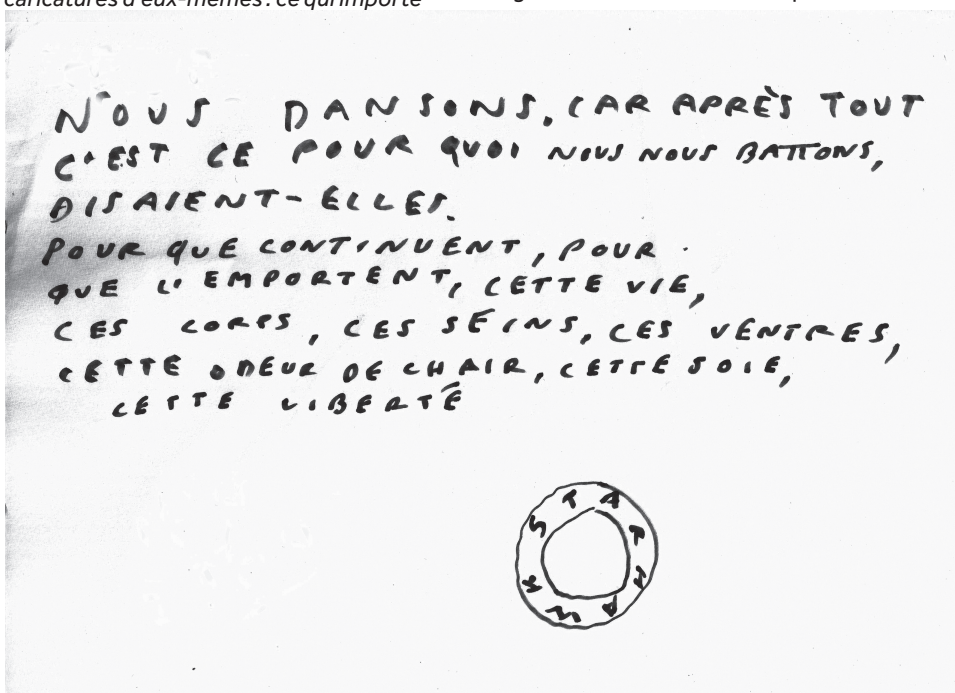 caricatures d'eux-mêmes : ce qui importe
NOUS DANSONS, CAR APRÈS TOUT
C'EST CE POUR QUOI NOUS NOUS BATTONS,
DISAIENT-ELLES.
POUR QUE CONTINUENT, POUR
QUE L'EMPORTENT, CETTE VIE,
CES CORPS, CES SEINS, CES VENTRES,
CETTE ODEUR DE CHAIR, CETTE SOIE,
CETTE LIBERTÉ
STARHAWK